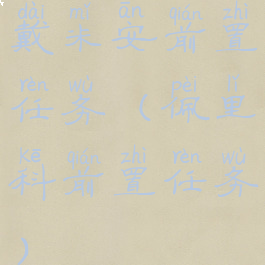 dài mǐ ān qián zhì
戴米安前置
rèn wù pèi lǐ
任务(佩里
kē qián zhì rèn wù
科前置任务
)